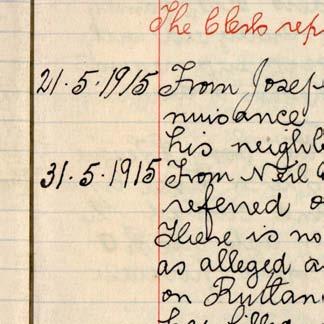 The Clerk rep
21.5.1915 From Josep
nuisance
his neighb
31.5.1915 From Neil
referred
There is no
as alleged a
on Rutlan